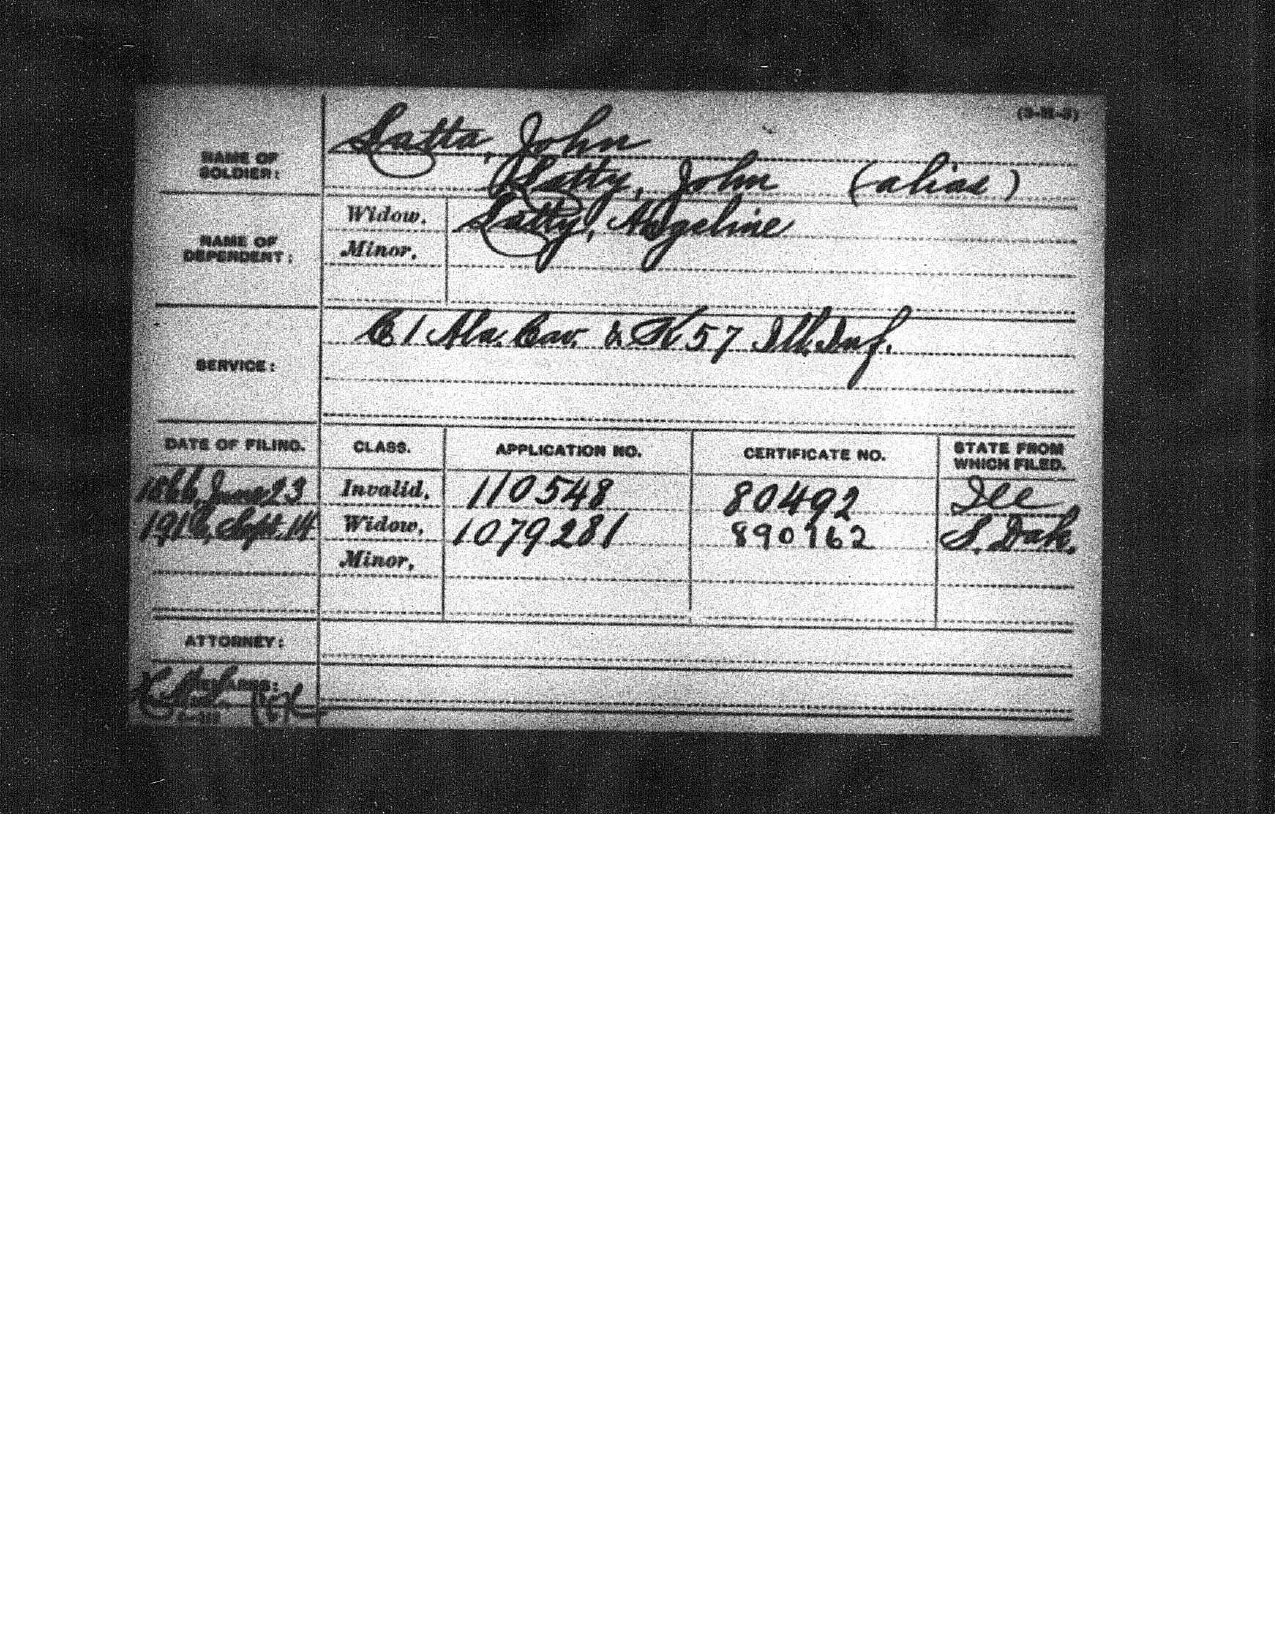 (3-11-3)
NAME OF SOLDIER: Latta, John
Latty, John (alias)
NAME OF DEPENDENT: Widow. Latty, Angeline
Minor.
SERVICE: C 1 Ala. Cav. & K 57 Ill. Inf.
DATE OF FILING. CLASS. APPLICATION NO. CERTIFICATE NO. STATE FROM WHICH FILED.
1866, June 23 Invalid, 110548 80492 Ill
1916, Sept. 14 Widow, 1079281 890162 S. Dak.
Minor,
ATTORNEY:
REMARKS: